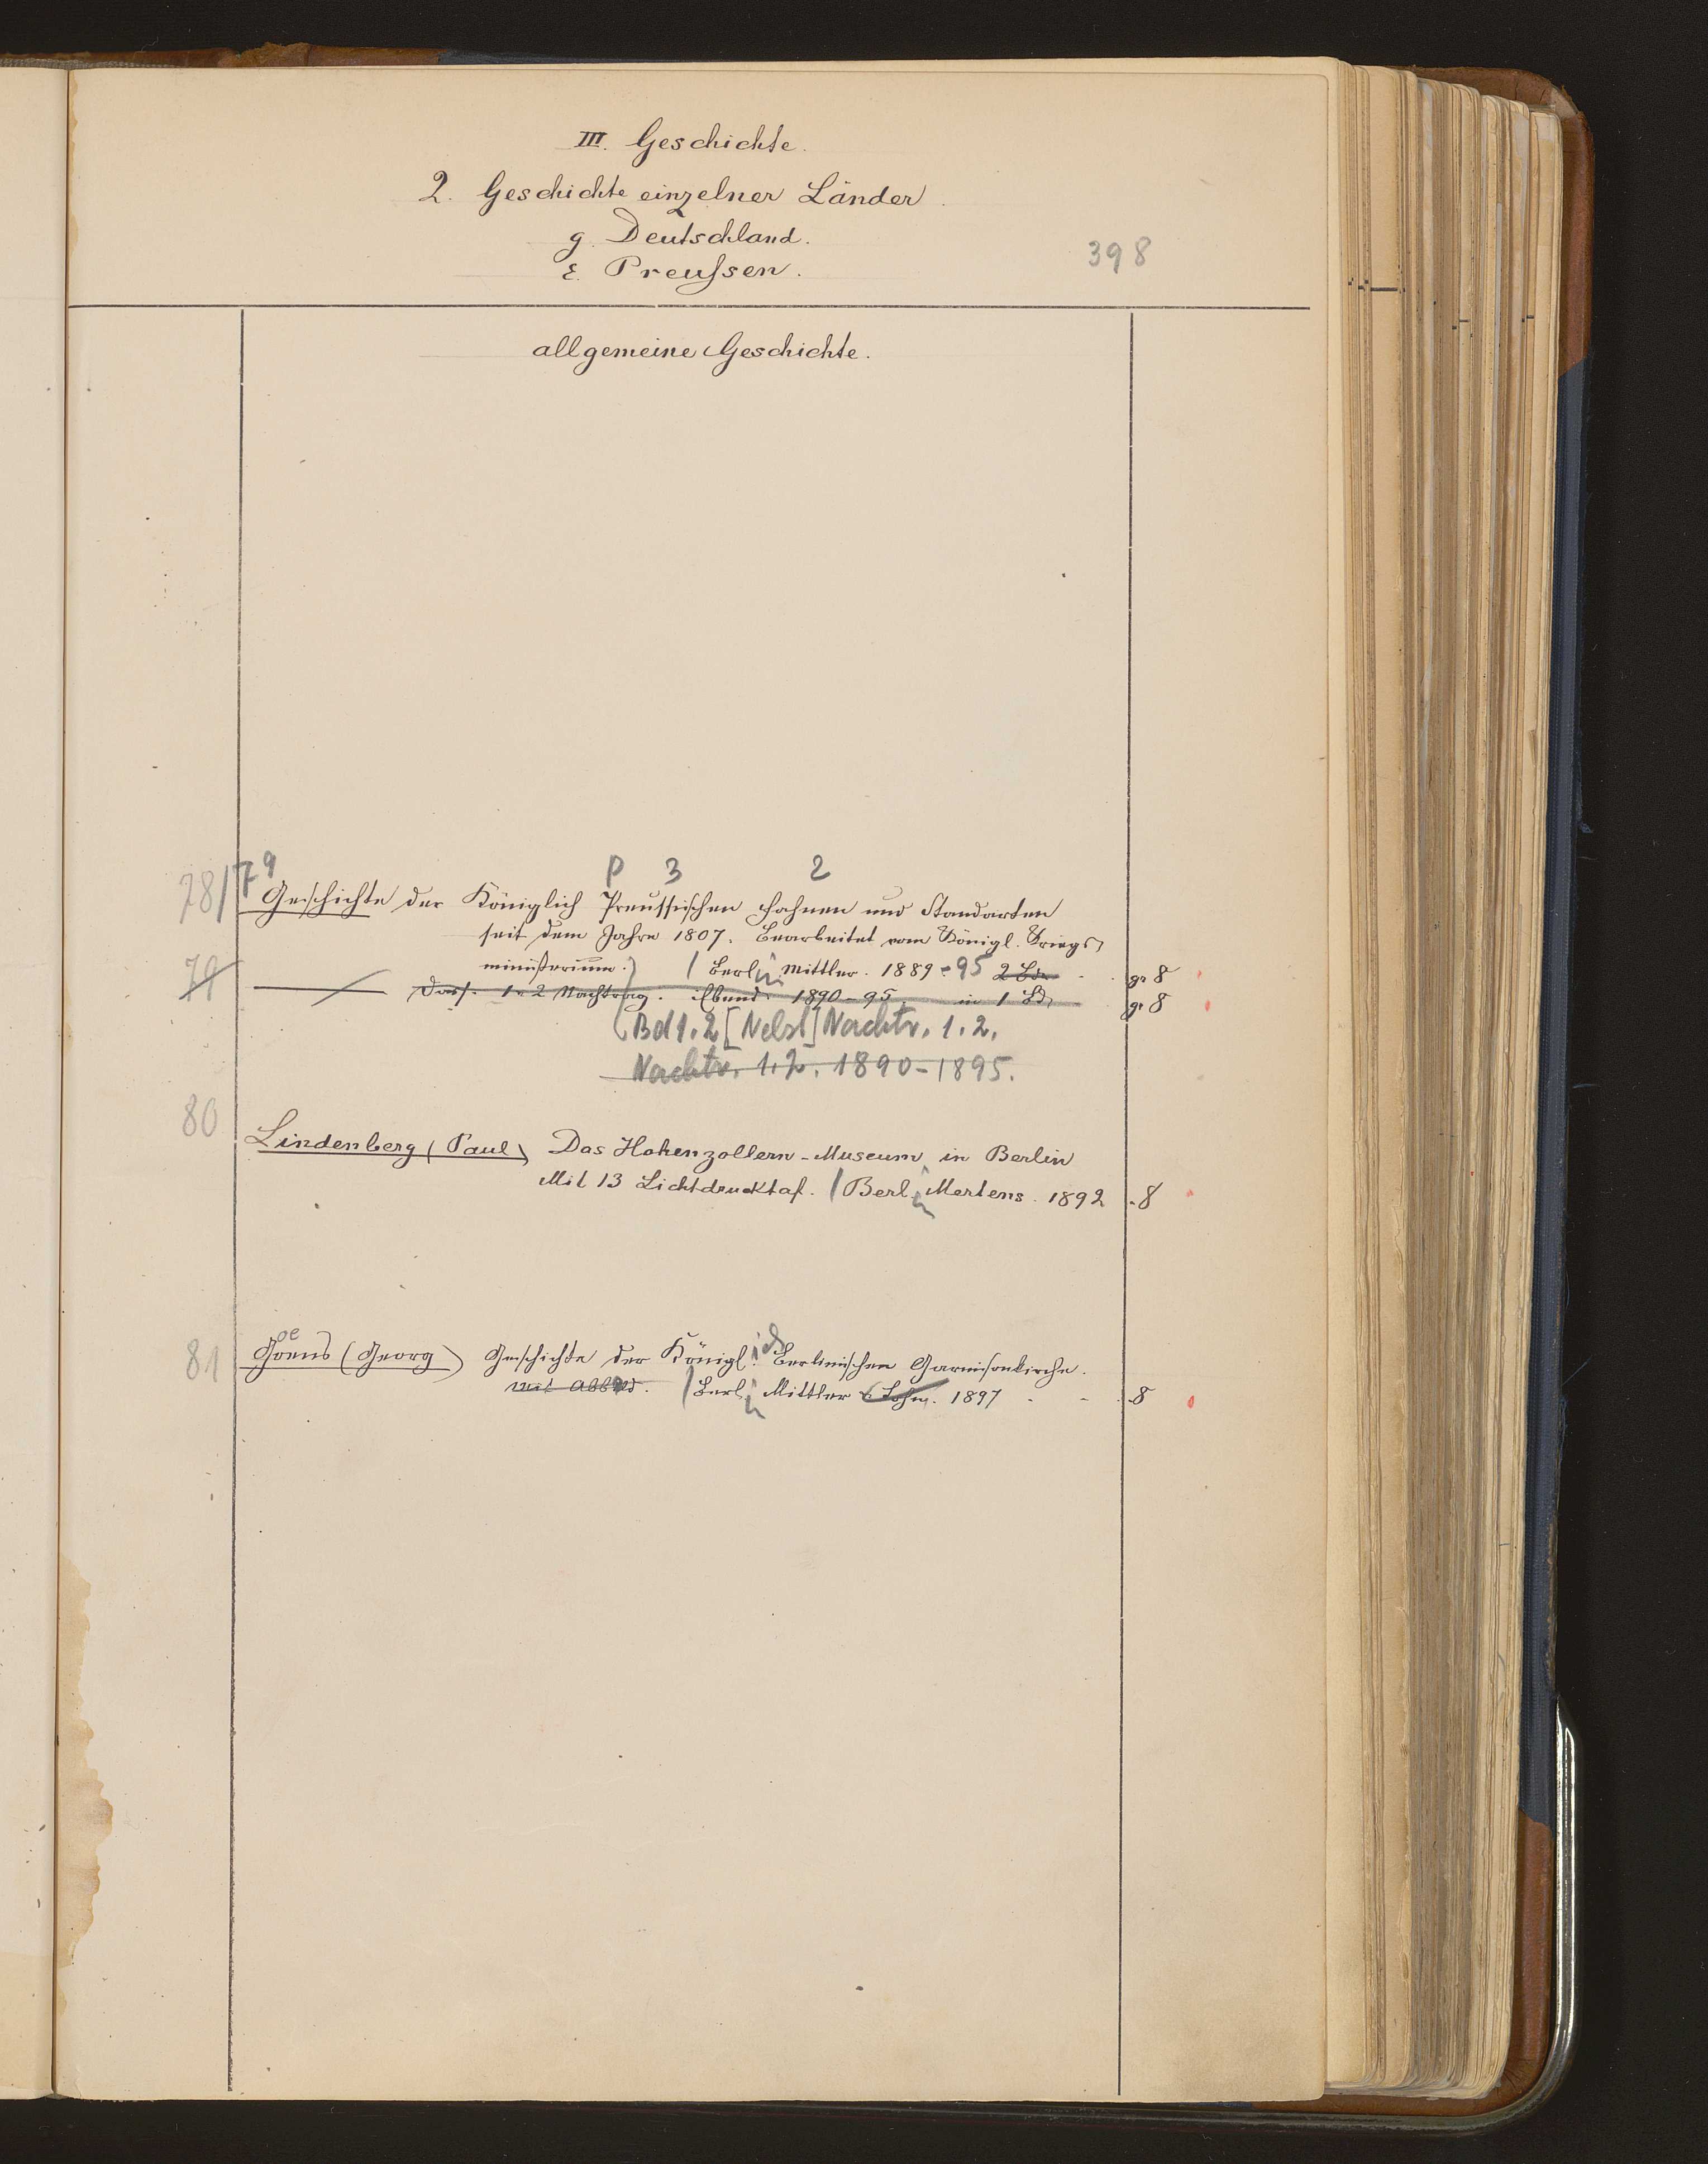 III. Geschichte.
2. Geschichte einzelner Länder.
g. Deutschland.
398
ε. Preußen.
allgemeine Geschichte.
p 3 2
78/79
Geschichte der Königlich Preussischen Fahnen und Standarten
seit dem Jahre 1807. Bearbeitet vom Königl. Kriegs
ministerium.) / Berlin Mittler. 1889-95 2 Bde gr 8
79
Dass. 1 u 2 Nachtrag. Ebend. 1890-95 in 1 Bd. gr 8
(Bd 1. 2 [Nebst] Nachtr. 1. 2.
Nachtr. 1. 2. 1890-1895.
80
Lindenberg (Paul) Das Hohenzollern-Museum in Berlin
Mit 13 Lichtdrucktaf. / Berlin Mertens. 1892 - 8
81
Goens (Georg) Geschichte der Königl. Berlinischen Garnisonkirche.
oe
ich
Mit Abbild. / Berlin Mittler & Sohn. 1897 - - . 8